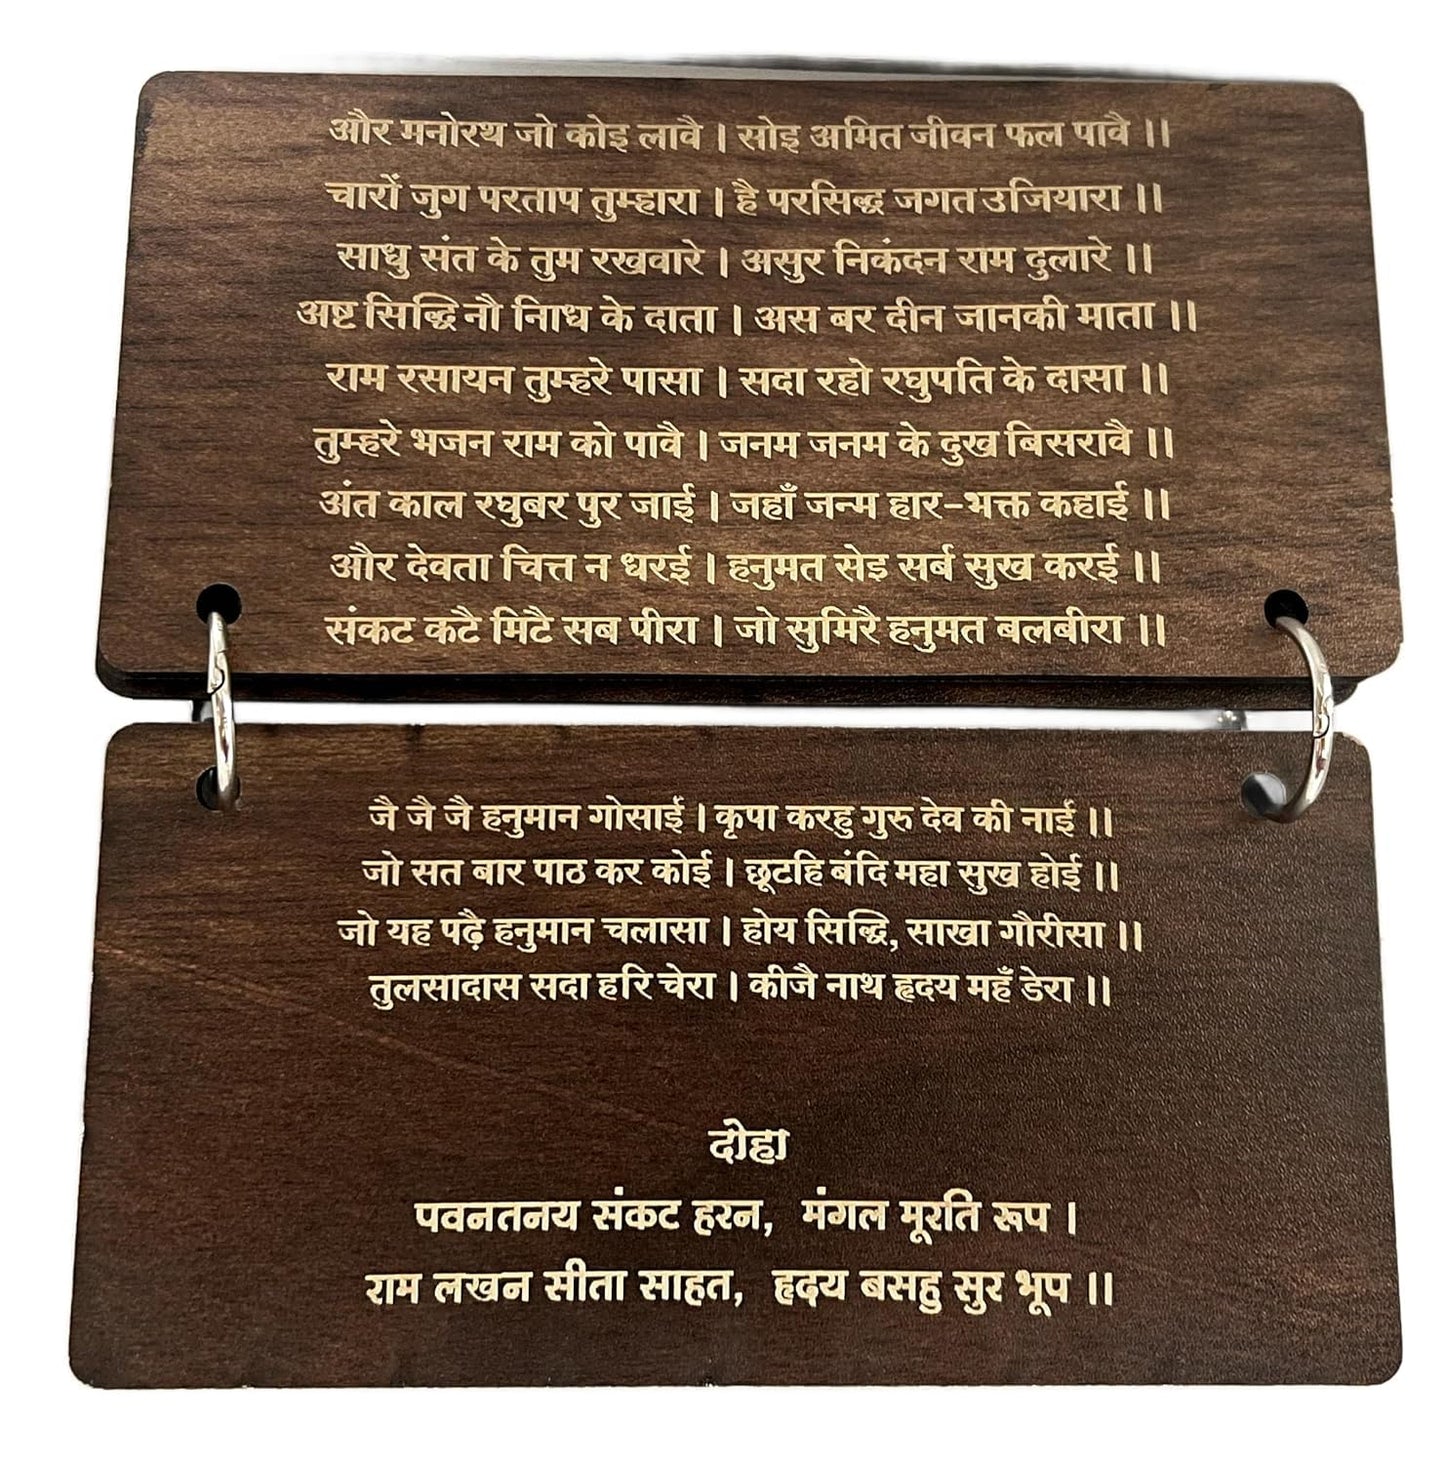 और मनोरथ जो कोइ लावै | सोइ अमित जीवन फल पावै ||
चारों जुग परताप तुम्हारा | है परसिद्ध जगत उजियारा ||
साधु संत के तुम रखवारे | असुर निकंदन राम दुलारे ||
अष्ट सिद्धि नौ निाध के दाता | अस बर दीन जानकी माता ||
राम रसायन तुम्हरे पासा | सदा रहो रघुपति के दासा ||
तुम्हरे भजन राम को पावै | जनम जनम के दुख बिसरावै ||
अंत काल रघुबर पुर जाई | जहाँ जन्म हार-भक्त कहाई ||
और देवता चित्त न धरई | हनुमत सेइ सर्ब सुख करई ||
संकट कटै मिटै सब पीरा | जो सुमिरै हनुमत बलबीरा ||
जै जै जै हनुमान गोसाई | कृपा करहु गुरु देव की नाई ||
जो सत बार पाठ कर कोई | छूटहि बंदि महा सुख होई ||
जो यह पढ़ै हनुमान चलासा | होय सिद्धि, साखा गौरीसा ||
तुलसादास सदा हरि चेरा | कीजै नाथ हृदय महँ डेरा ||
दोहा
पवनतनय संकट हरन, मंगल मूरति रूप |
राम लखन सीता साहत, हृदय बसहु सुर भूप ||